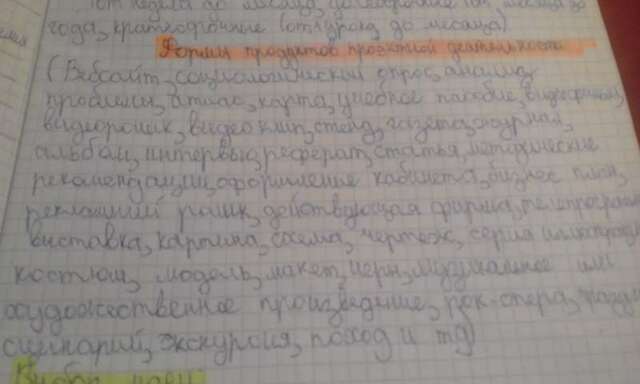 от недели до месяца, долгосрочные от месяца до
года, краткосрочные (от 1 урока до месяца)
Формы продуктов проектной деятельности
(Вебсайт, социологический опрос, анализ
проблемы, атлас, карта, учебное пособие, видеофильм,
видеоролик, видео клип, стенд, газета, журнал,
альбом, интервью, реферат, статья, методические
рекомендации, оформление кабинета, бизнес план,
рекламный ролик, действующая фирма, телепрограмма
выставка, картина, схема, чертеж, серия иллюстраций
костюм, модель, макет, игры, музыкальное или
художественное произведение, рок-опера,
сценарий, экскурсия, поход и тд)
Выбор